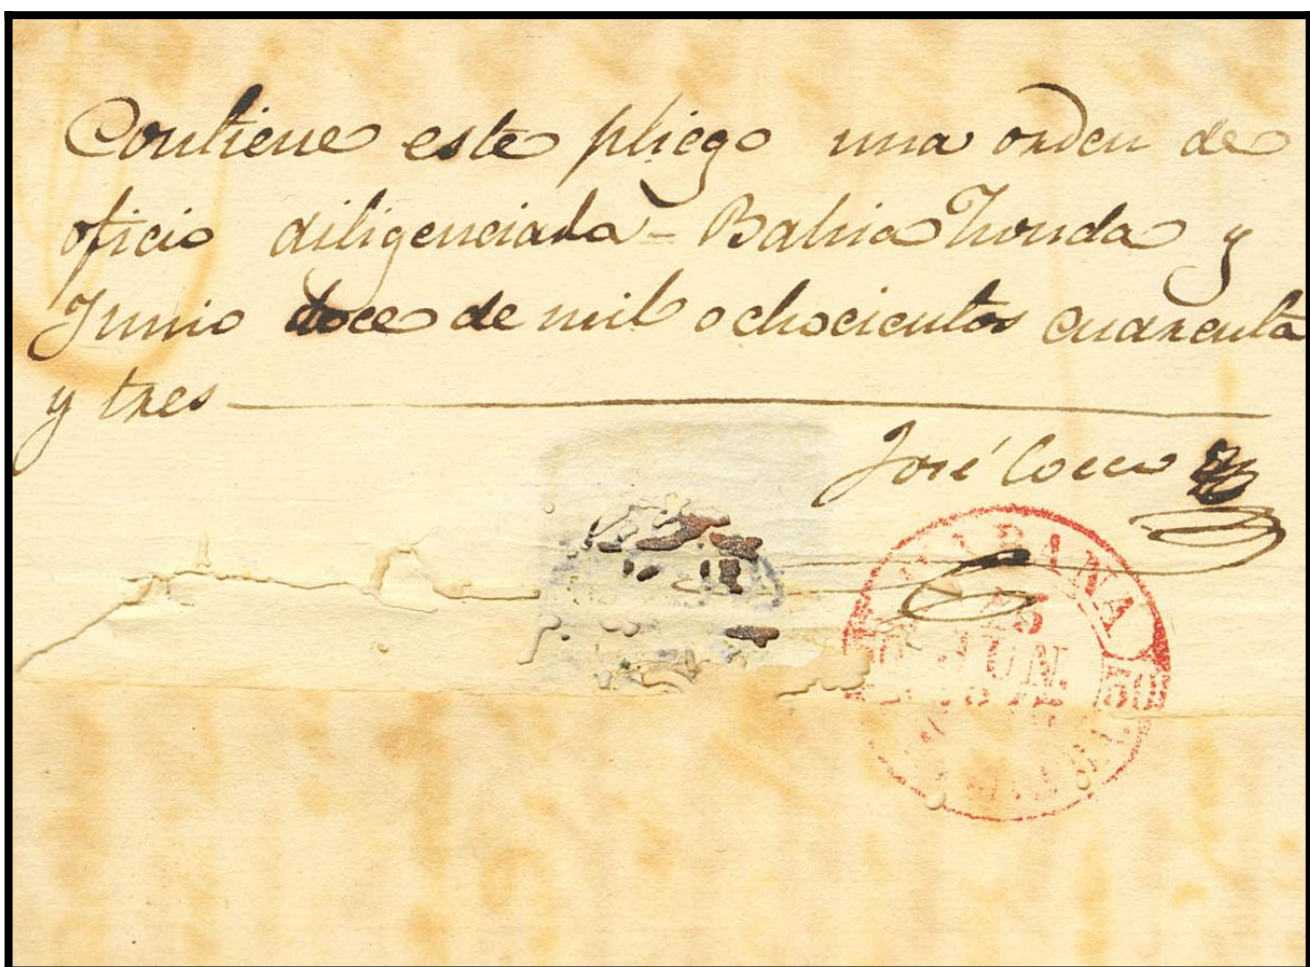 Contiene este pliego una orden de
oficio diligenciada - Bahia honda y
Junio doce de mil ochocientos cuarenta
y tres
José
HABANA
JUN.